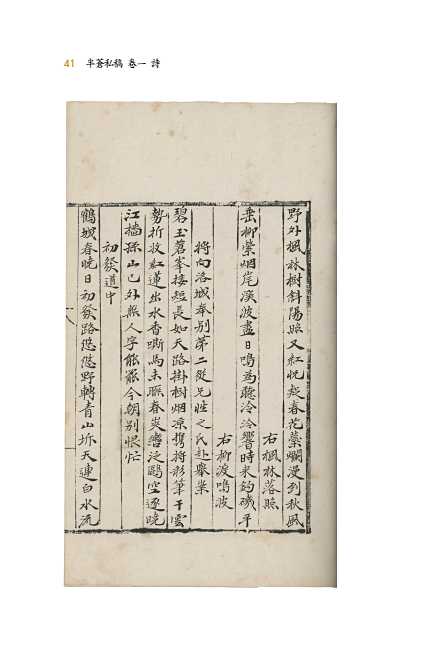 41 半蒼私稿 卷一 詩
野外楓林樹斜陽照又紅恍疑春花蘂爛漫到秋風
右楓林落照
垂柳縈烟岸溪波盡日鳴為聽泠泠響時来釣磯平
右柳渡鳴波
將向洛城奉別第二從兄性之氏赴擧業
碧玉蒼峯接短長如天路掛樹烟凉携將彩筆干雲
勢折收紅蓮出水香嘶馬未聯春巒泛鷗空逐曉
江檣孫山已外無人字能罷今朝別恨忙
初發道中
鶴城春晩日初發路悠悠野轉青山坼天連白水流